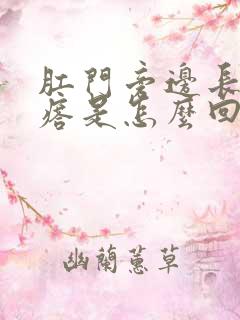 肛門旁邊長
痞是怎麼回
幽蘭蕙草